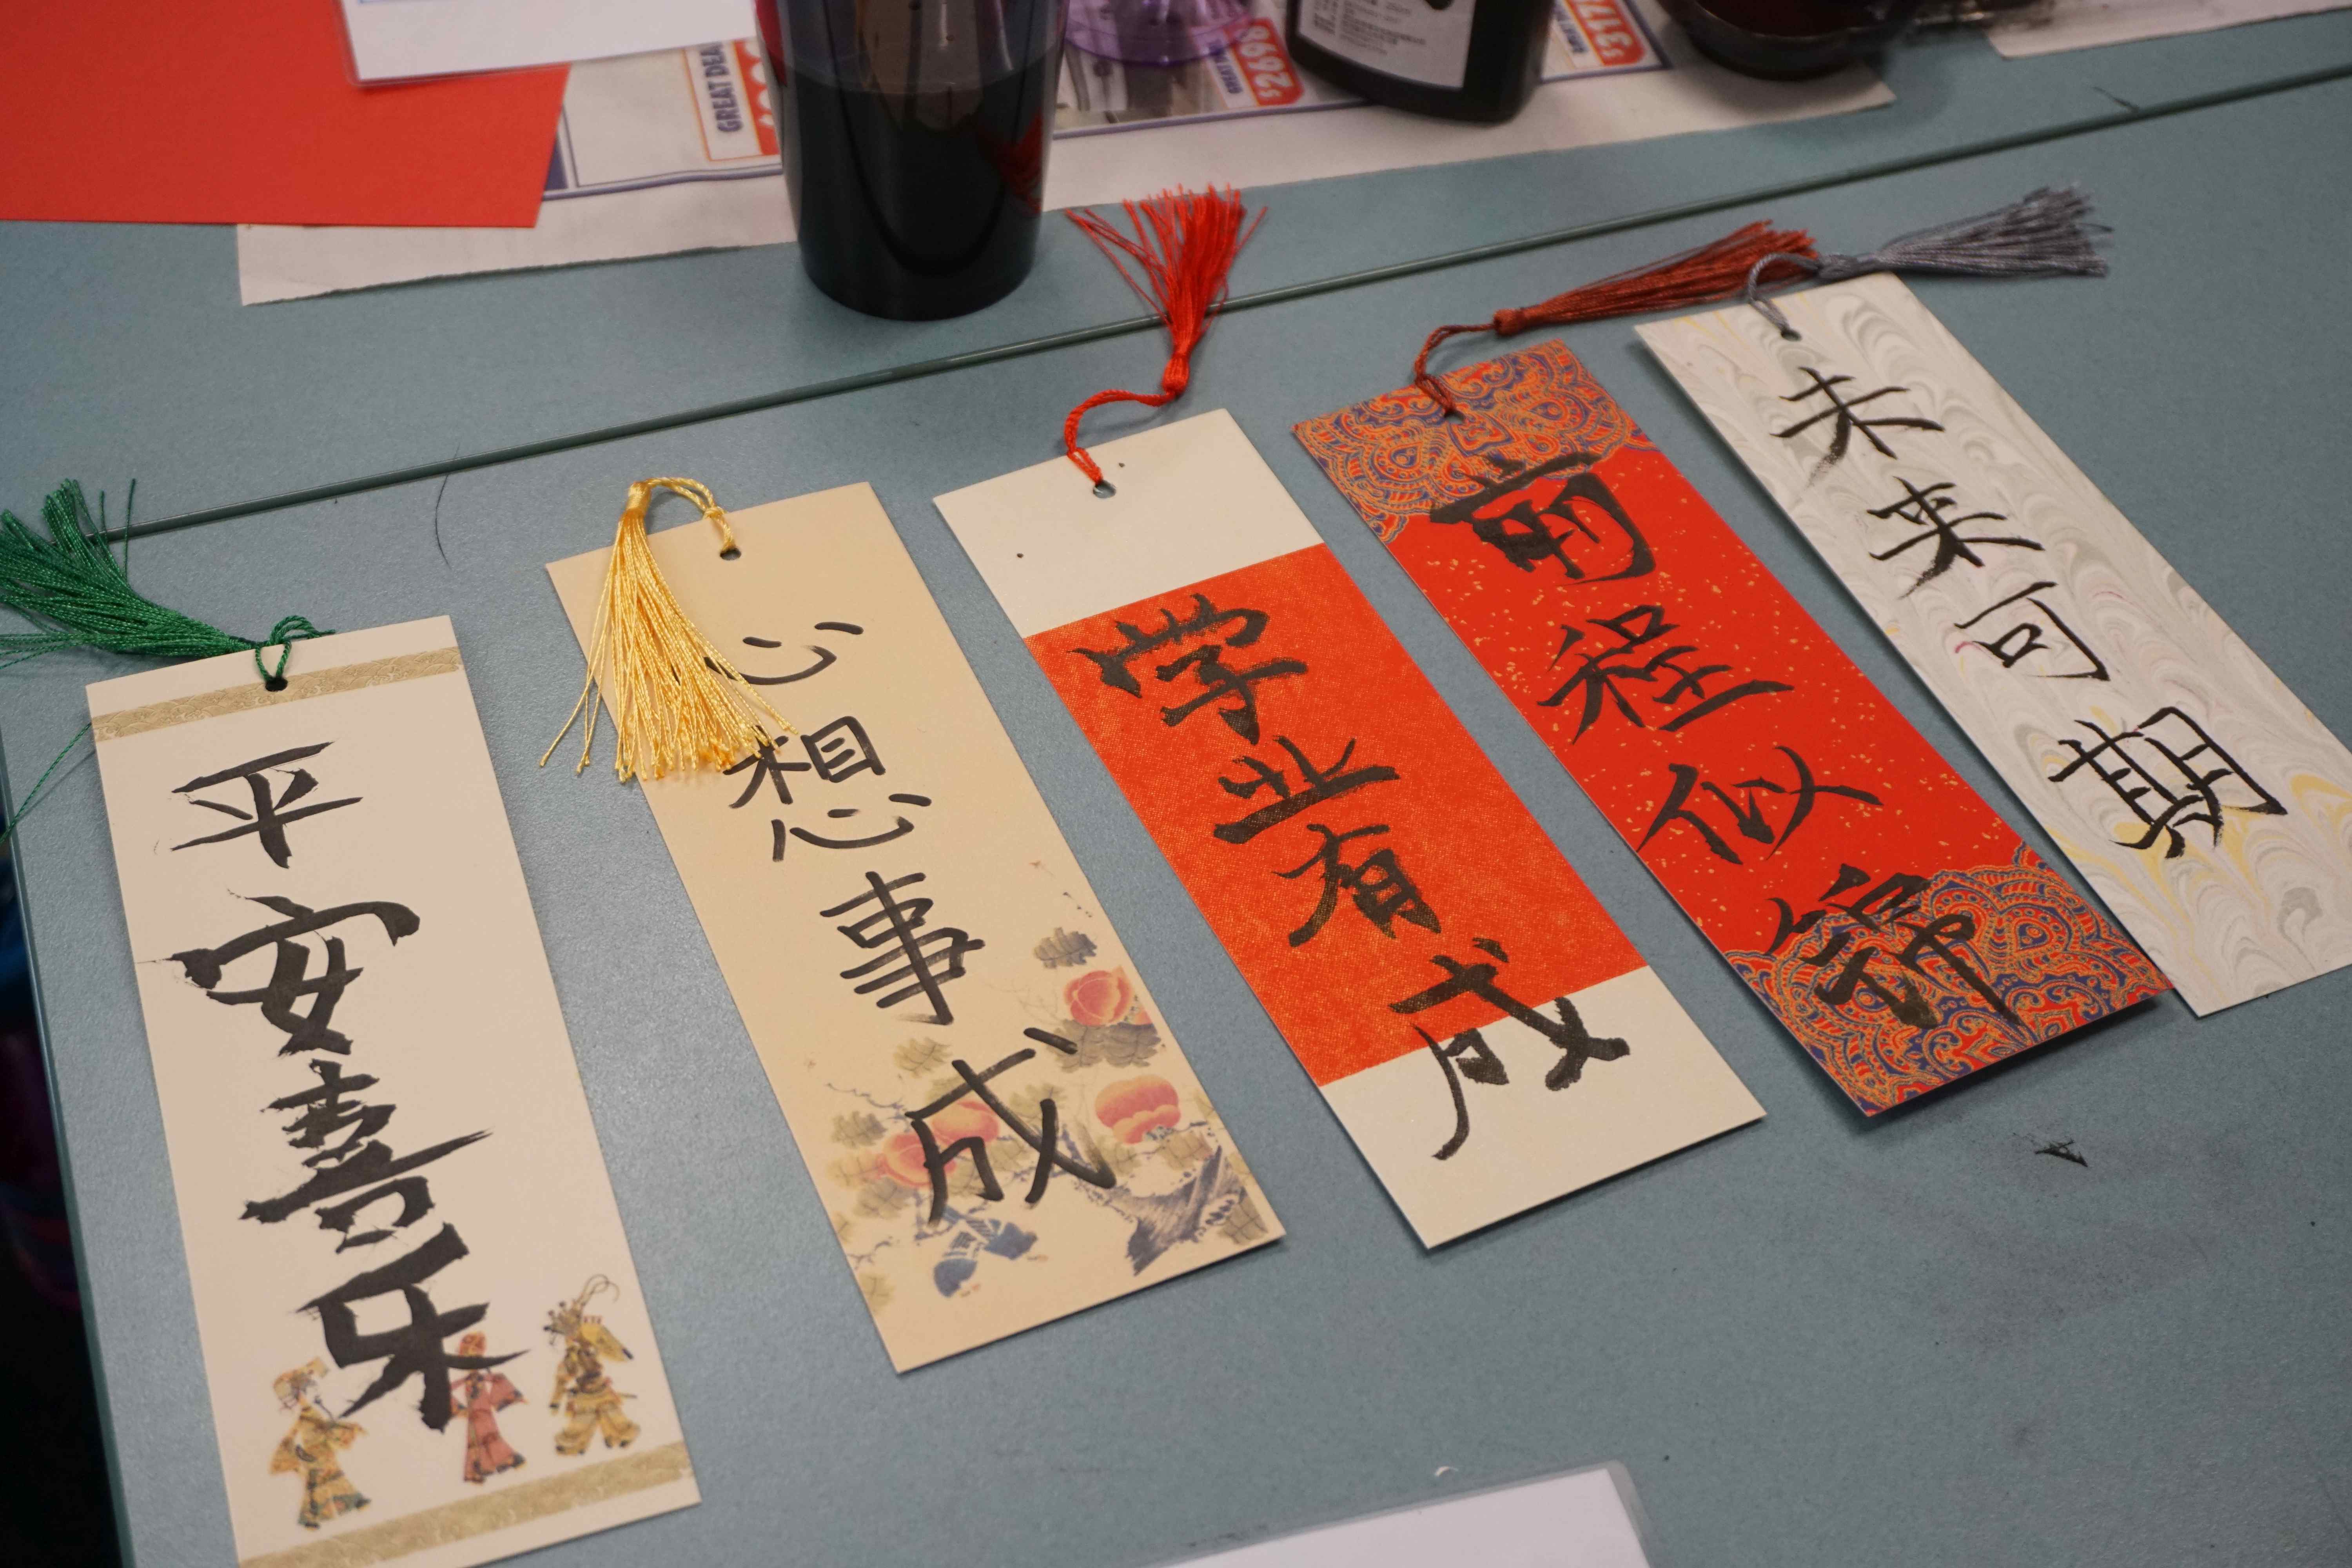 GREAT DEA
$2698
平安喜乐
心想事成
学业有成
前程似锦
未来可期